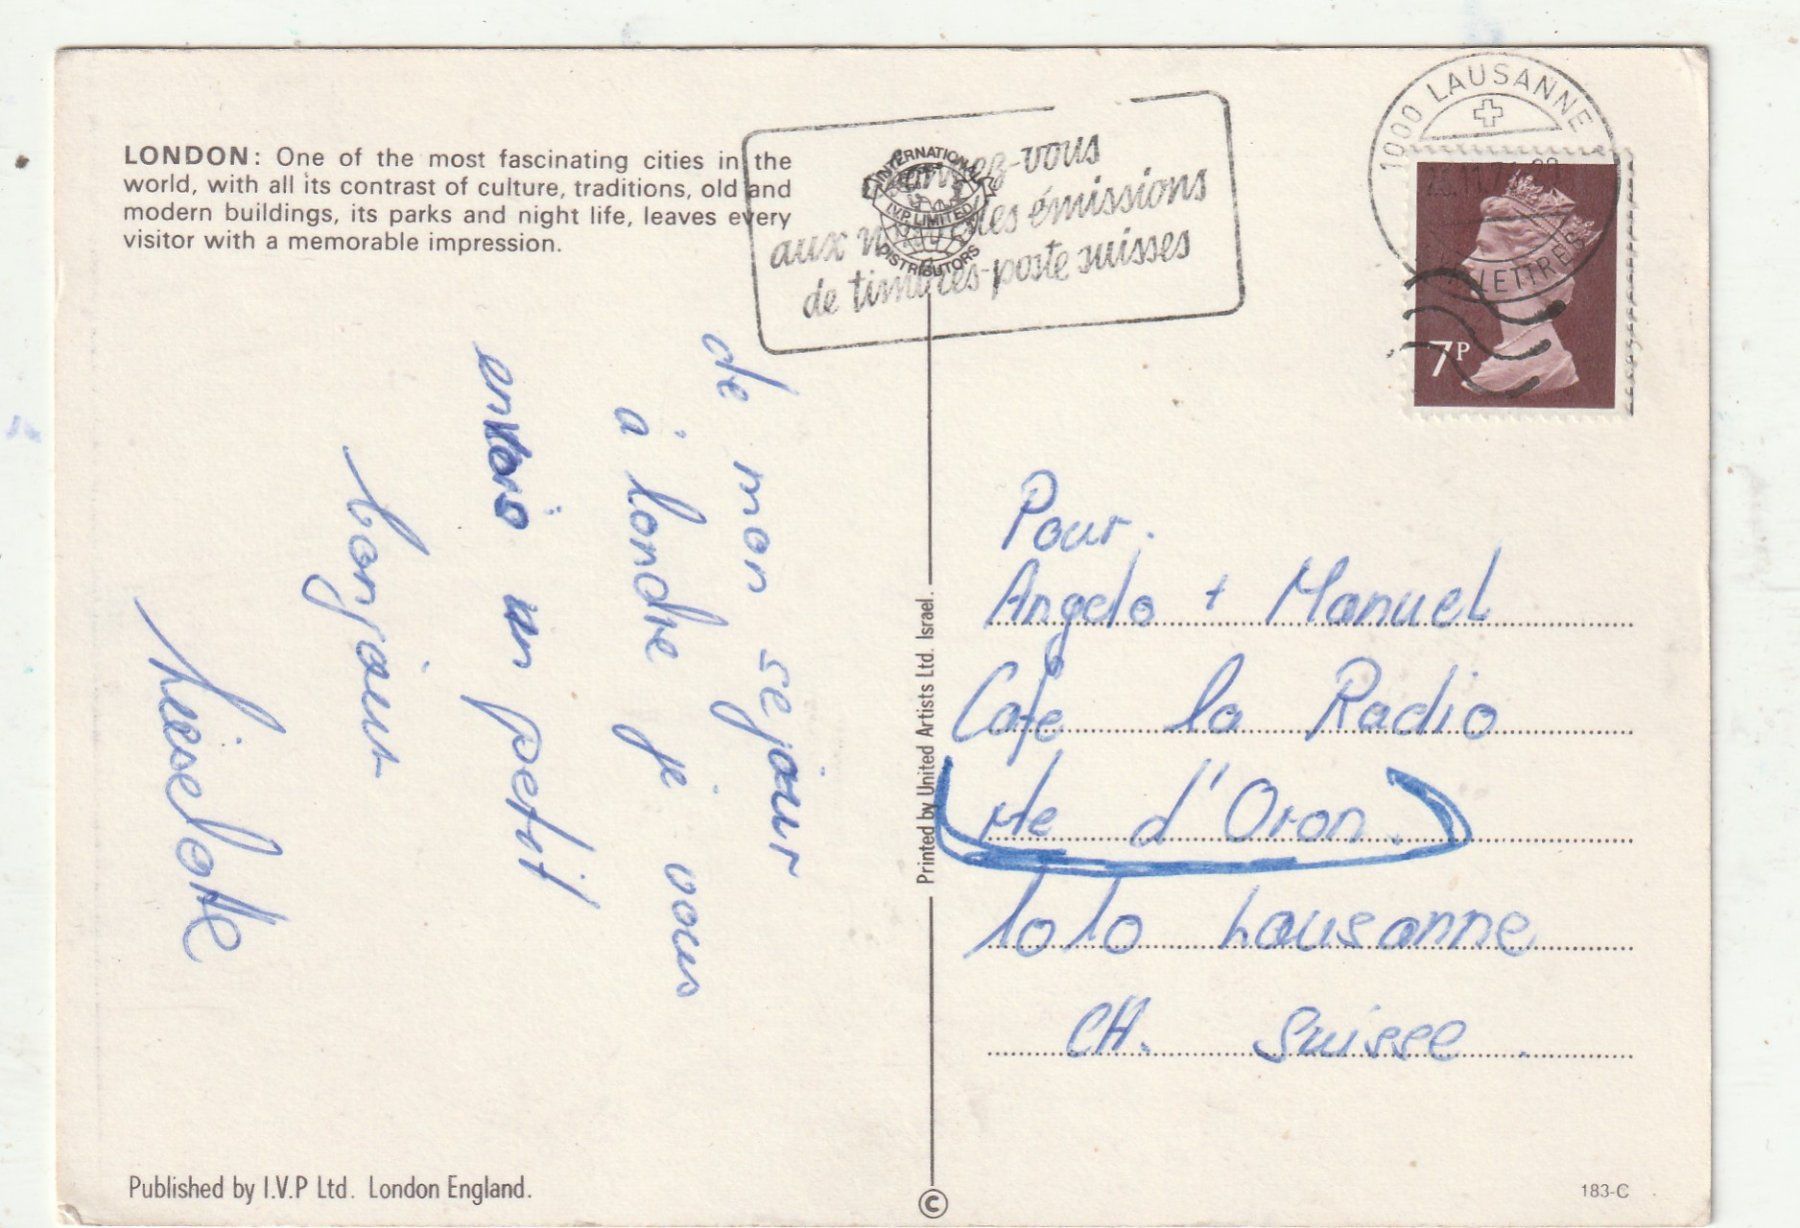 LONDON: One of the most fascinating cities in the
world, with all its contrast of culture, traditions, old and
modern buildings, its parks and night life, leaves every
visitor with a memorable impression.
INTERNATIONAL
I.V.P. LIMITED
DISTRIBUTORS
-vous
aux les émissions
de timbres-poste suisses
1000 LAUSANNE
LETTRES
7P
de mon sejour
à londre je vous
envois un petit
bonjour
Lieselotte
Pour.
Angelo + Manuel
Cafe la Radio
rte d'Oron.
1010 Lausanne
CH. Suisse
Printed by United Artists Ltd. Israel.
Published by I.V.P Ltd. London England.
©
183-C